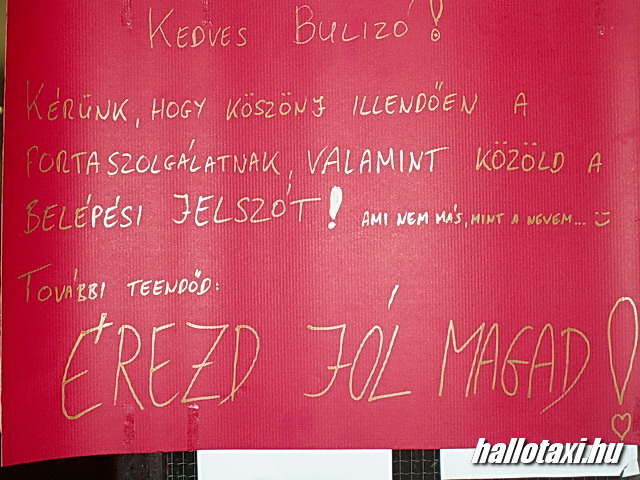 KEDVES BULIZÓ!
KÉRÜNK, HOGY KÖSZÖNJ ILLENDŐEN A
PORTASZOLGÁLATNAK, VALAMINT KÖZÖLD A
BELÉPÉSI JELSZÓT! AMI NEM MÁS, MINT A NEVEM... :)
TOVÁBBI TEENDŐD:
ÉREZD JÓL MAGAD!
hallotaxi.hu